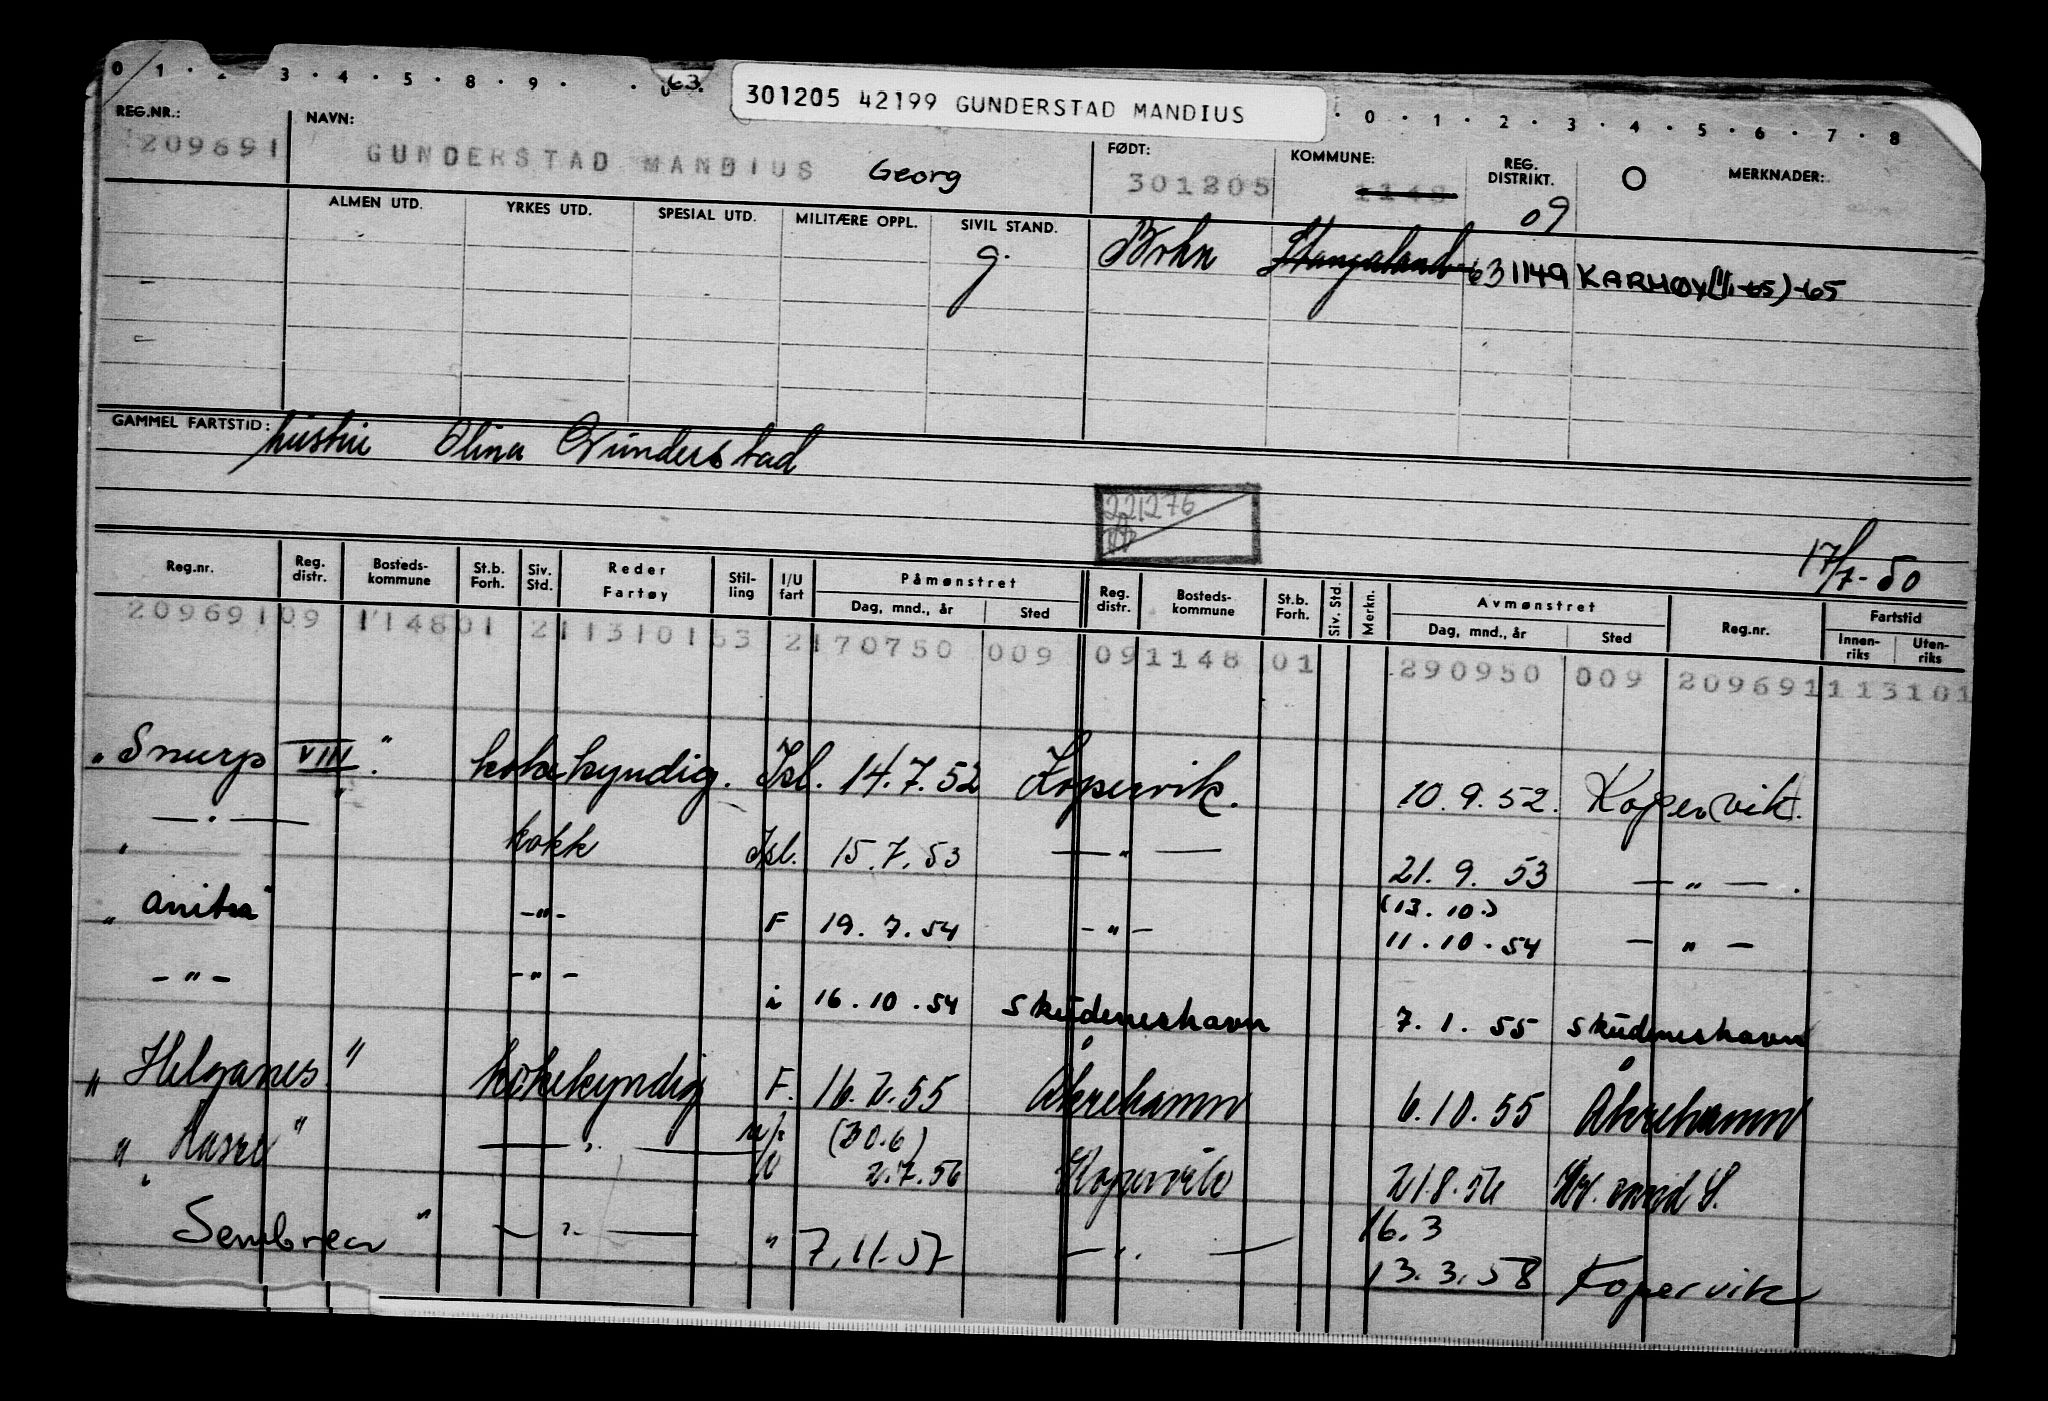 0 1 · 2 · 3 · 4 · 5 · 8 · 9 · · 63. · 0 · 1 · 2 · 3 · 4 · 5 · 6 · 7 · 8
301205 42199 GUNDERSTAD MANDIUS
REG.NR.: NAVN: FØDT: KOMMUNE: REG. DISTRIKT. O MERKNADER:
209691 GUNDERSTAD MANDIUS Georg 301205 1148 09
ALMEN UTD. YRKES UTD. SPESIAL UTD. MILITÆRE OPPL. SIVIL STAND.
g. Bokn Stangaland 63 1149 KARMØY (1/1-65) -65
GAMMEL FARTSTID: hustru Olina Gunderstad
221276
17/7-50
Reg.nr. Reg. distr. Bosteds-kommune St.b. Forh. Siv. Std. Reder Fartøy Stil-ling I/U fart Påmønstret Reg. distr. Bosteds-kommune St.b. Forh. Siv. Std. Merkn. Avmønstret Reg.nr. Fartstid
Dag, mnd., år Sted Dag, mnd., år Sted Innen-riks Uten-riks
209691 09 1148 01 2 11310153 2 170750 009 09 1148 01 290950 009 209691 113101
"Snurp VIII" kokekyndig. Isl. 14.7.52 Kopervik. 10.9.52. Kopervik.
— " — kokk Isl. 15.7.53 — " — 21.9.53 — " — .
(13.10.)
"Anitra" - " - F 19.7.54 - " - 11.10.54 — " —
- " - - " - i 16.10.54 Skudeneshavn 7.1.55 Skudeneshavn
"Helganes" kokekyndig F. 16.7.55 Åkrehamn 6.10.55 Åkrehamn
(30.6)
— " — 2.7.56 Kopervik 21.8.56
16.3
— " — " 7.11.57 — " — 13.3.58 Kopervik